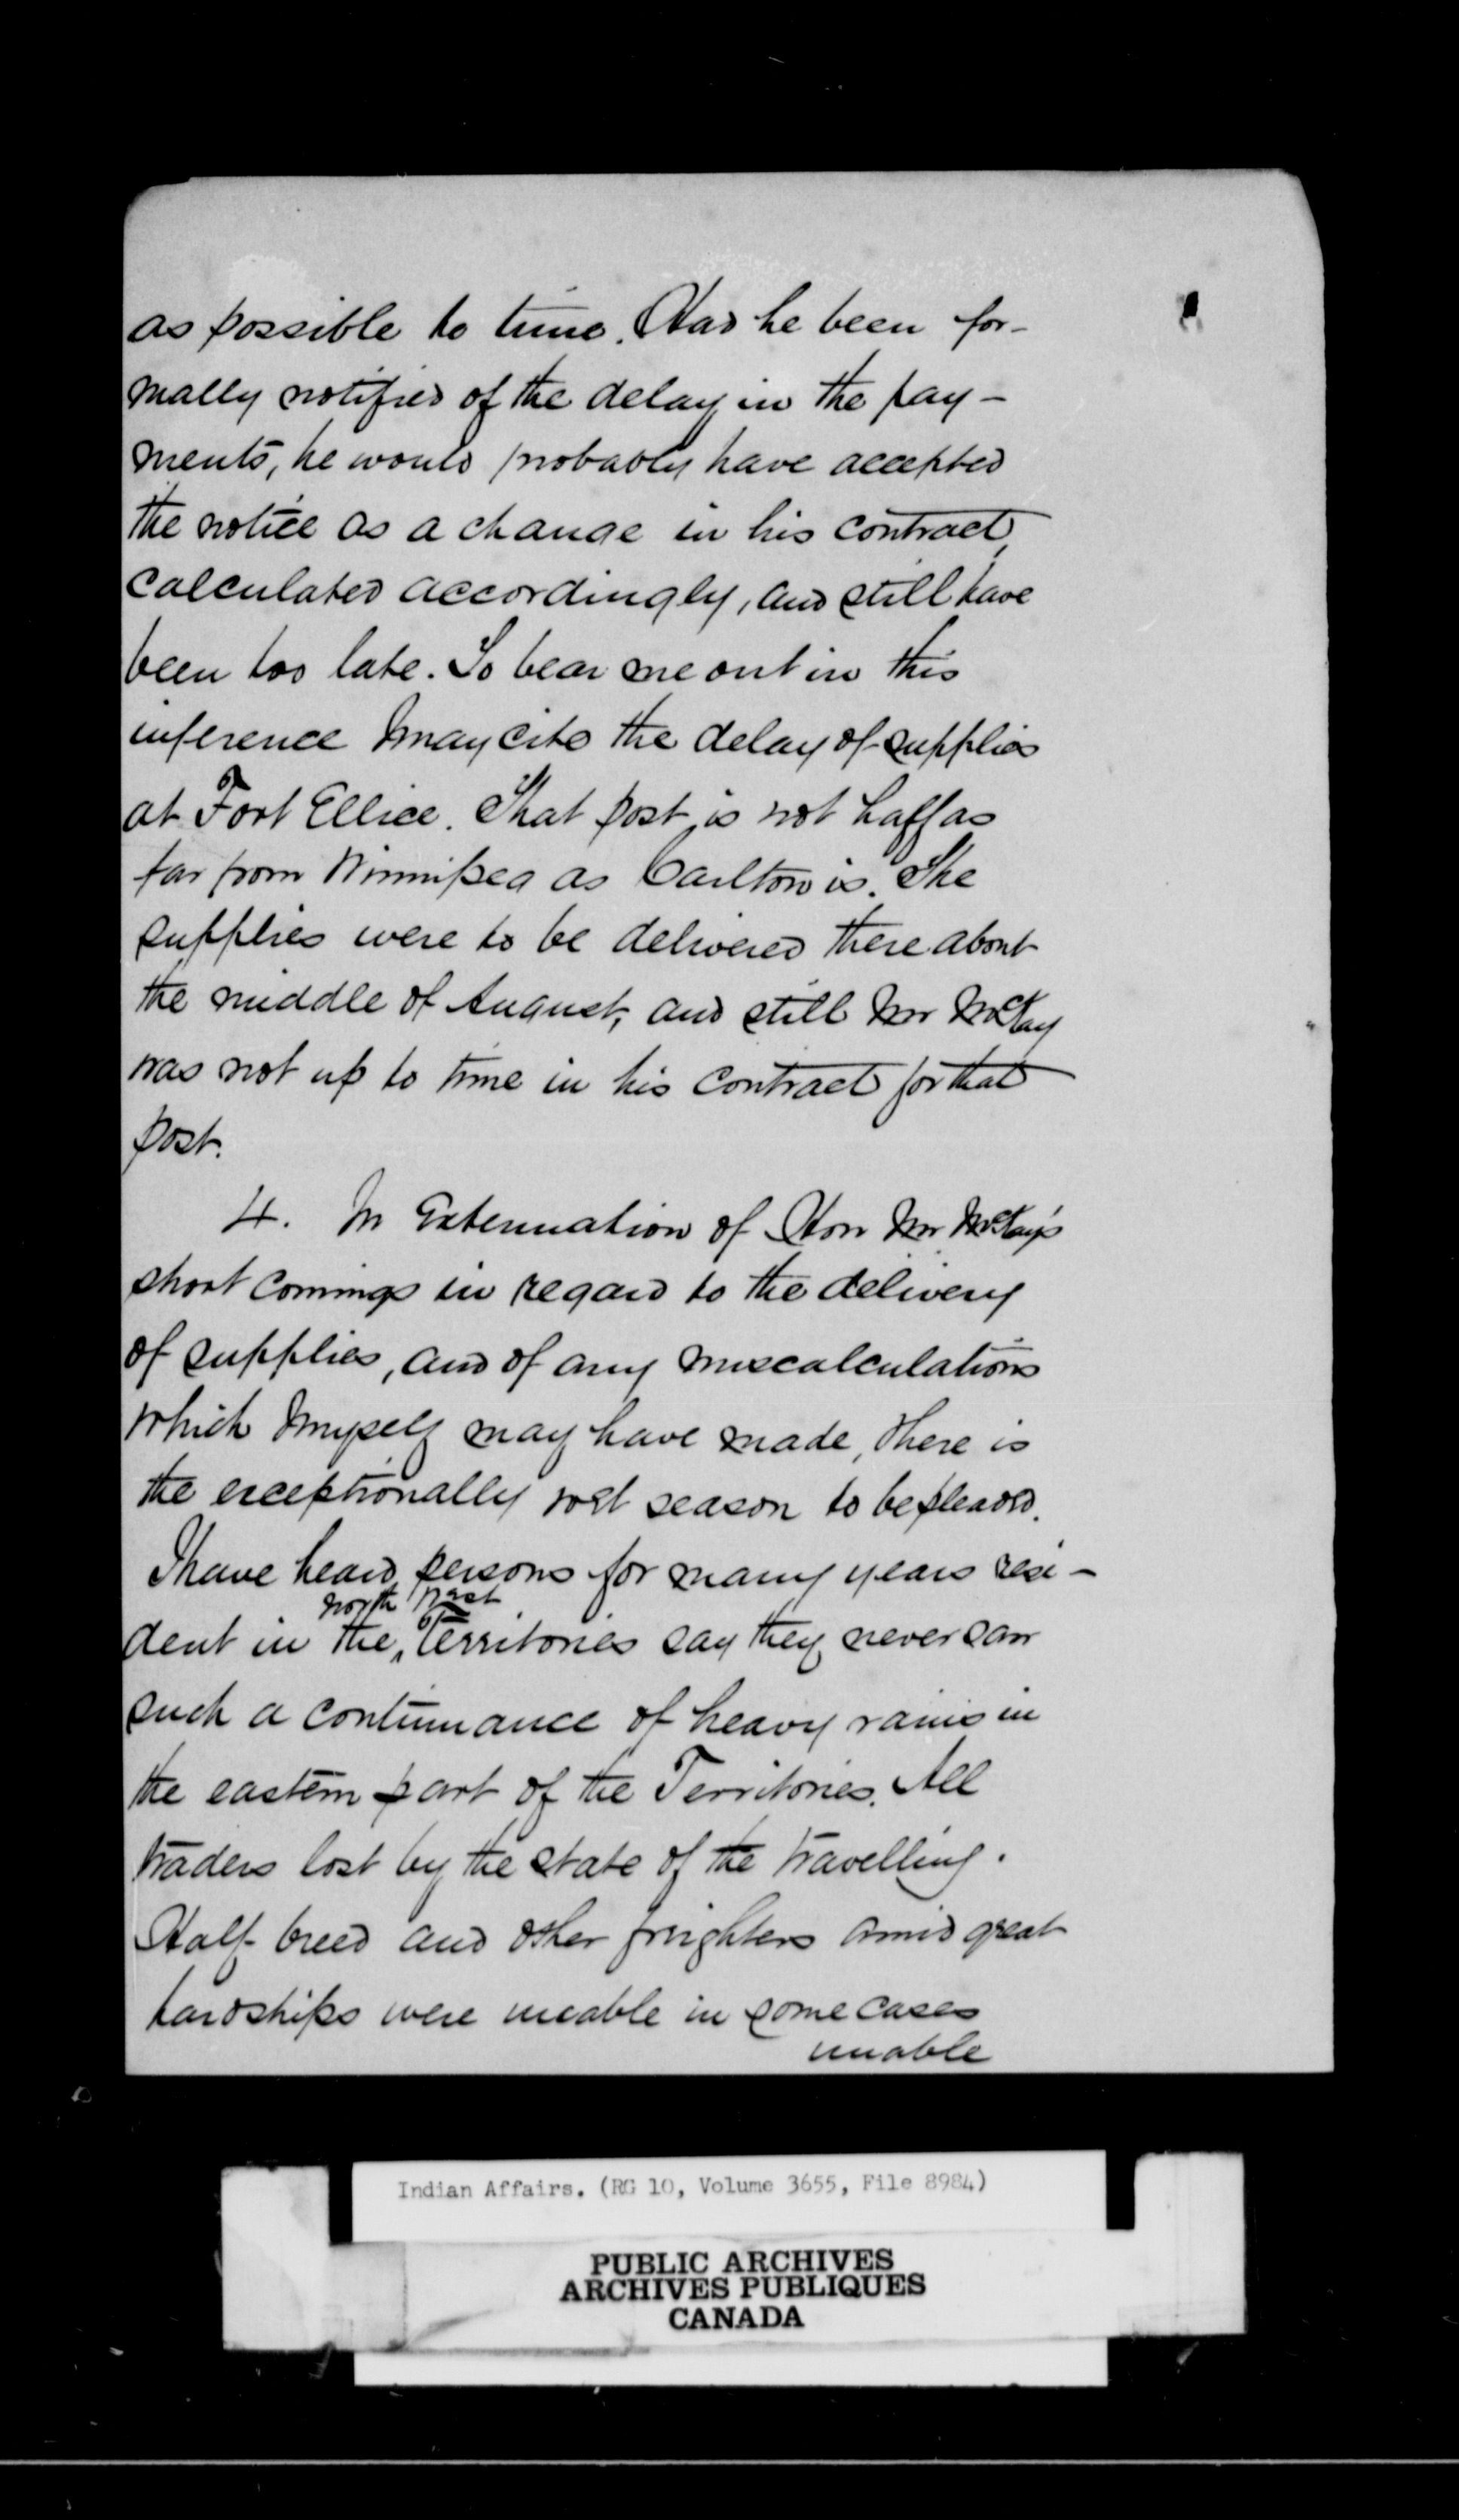 as possible to time. Had he been for-
mally notified of the delay in the pay-
ments, he would probably have accepted
the notice as a change in his contract,
calculated accordingly, and still have
been too late. To bear me out in this
inference I may cite the delay of supplies
at Fort Ellice. That post is not half as
far from Winnipeg as Carlton is. The
supplies were to be delivered there about
the middle of August, and still Mr McKay
was not up to time in his contract for that
post.
4. In extenuation of Hon Mr McKay's
short comings in regard to the delivery
of supplies, and of any miscalculations
which I myself may have made, there is
the exceptionally wet season to be pleaded.
I have heard persons for many years resi-
north West
dent in the, Territories say they never saw
such a continuance of heavy rains in
the eastern part of the Territories. All
traders lost by the state of the travelling.
Half breed and other freighters amid great
hardships were unable in some cases
unable
Indian Affairs. (RG 10, Volume 3655, File 8984)
PUBLIC ARCHIVES
ARCHIVES PUBLIQUES
CANADA